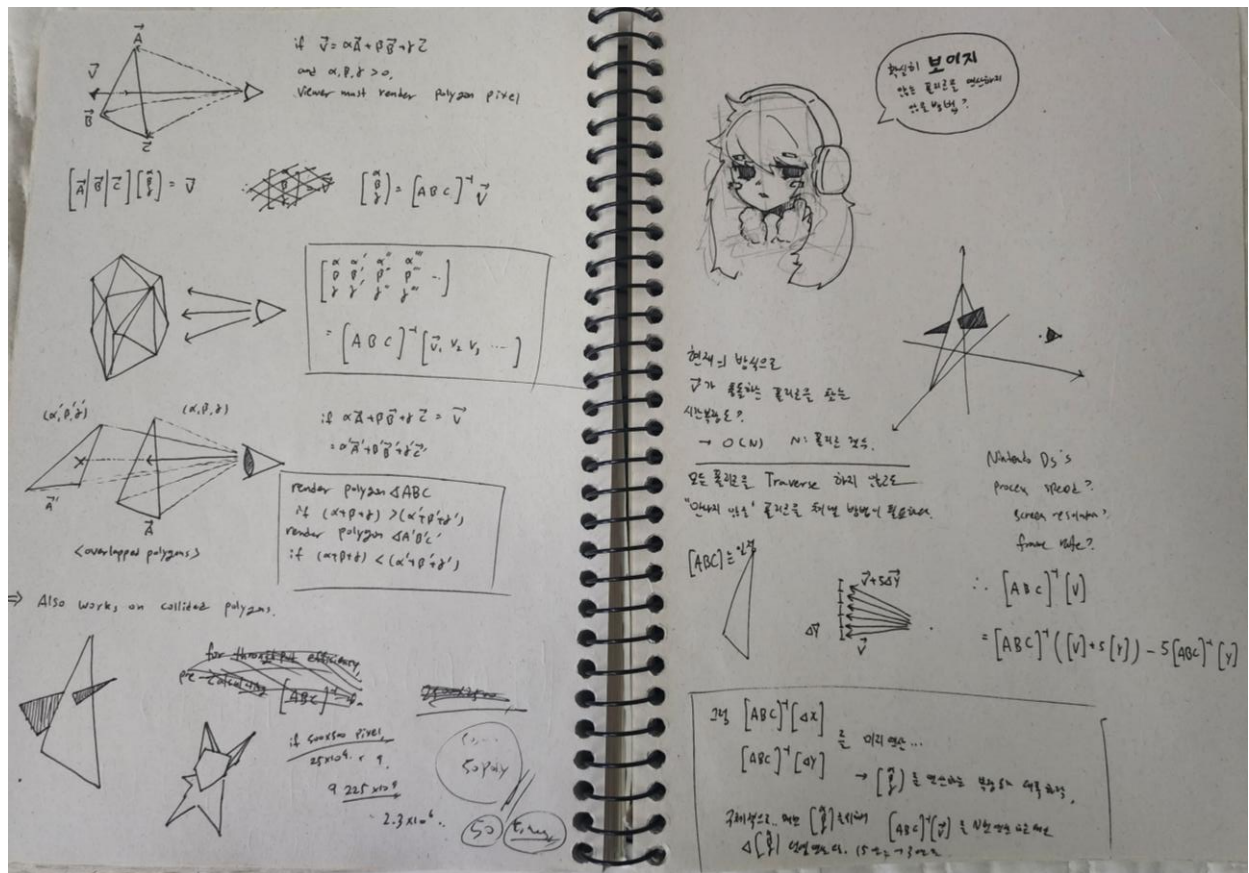 if V⃗ = αA⃗ + βB⃗ + γC⃗
and α, β, γ > 0,
viewer must render polygon pixel
A⃗
V⃗
B⃗
C⃗
[A⃗|B⃗|C⃗][α β γ] = V⃗
[α β γ] = [A B C]⁻¹ V⃗
[α α' α'' α'''
β β' β'' β''' ...
γ γ' γ'' γ''']
= [A B C]⁻¹ [V⃗₁ V₂ V₃ ...]
(α', β', γ')
(α, β, γ)
A⃗'
A⃗
<overlapped polygons>
if αA⃗ + βB⃗ + γC⃗ = V⃗
= α'A⃗' + β'B⃗' + γ'C⃗'
render polygon △ABC
if (α+β+γ) > (α'+β'+γ')
render polygon △A'B'C'
if (α+β+γ) < (α'+β'+γ')
⇒ Also works on collided polygons.
for throughput efficiency,
pre-calculating [ABC]⁻¹
if 500x500 pixel,
25×10⁴ × 9
9 225×10⁴
2.3×10⁶
50 poly
50
확실히 보이지
않는 폴리곤을 연산하지
않을 방법?
현재의 방식으로
V⃗가 충돌하는 폴리곤을 찾는
시간복잡도?
→ O(N) N: 폴리곤 갯수.
모든 폴리곤을 Traverse 하지 않고도
"만나지 않을" 폴리곤을 쳐낼 방법이 필요하다.
Nintendo DS's
process speed?
screen resolution?
frame rate?
[ABC]는 인접
V⃗+5ΔY⃗
ΔY⃗
V⃗
∴ [ABC]⁻¹[V]
= [ABC]⁻¹([V]+5[Y]) − 5[ABC]⁻¹[Y]
그냥 [ABC]⁻¹[ΔX]
[ABC]⁻¹[ΔY]
를 미리 연산...
→ [α β γ]을 연산하는
[ABC]⁻¹[V⃗]을
Δ[α β γ]